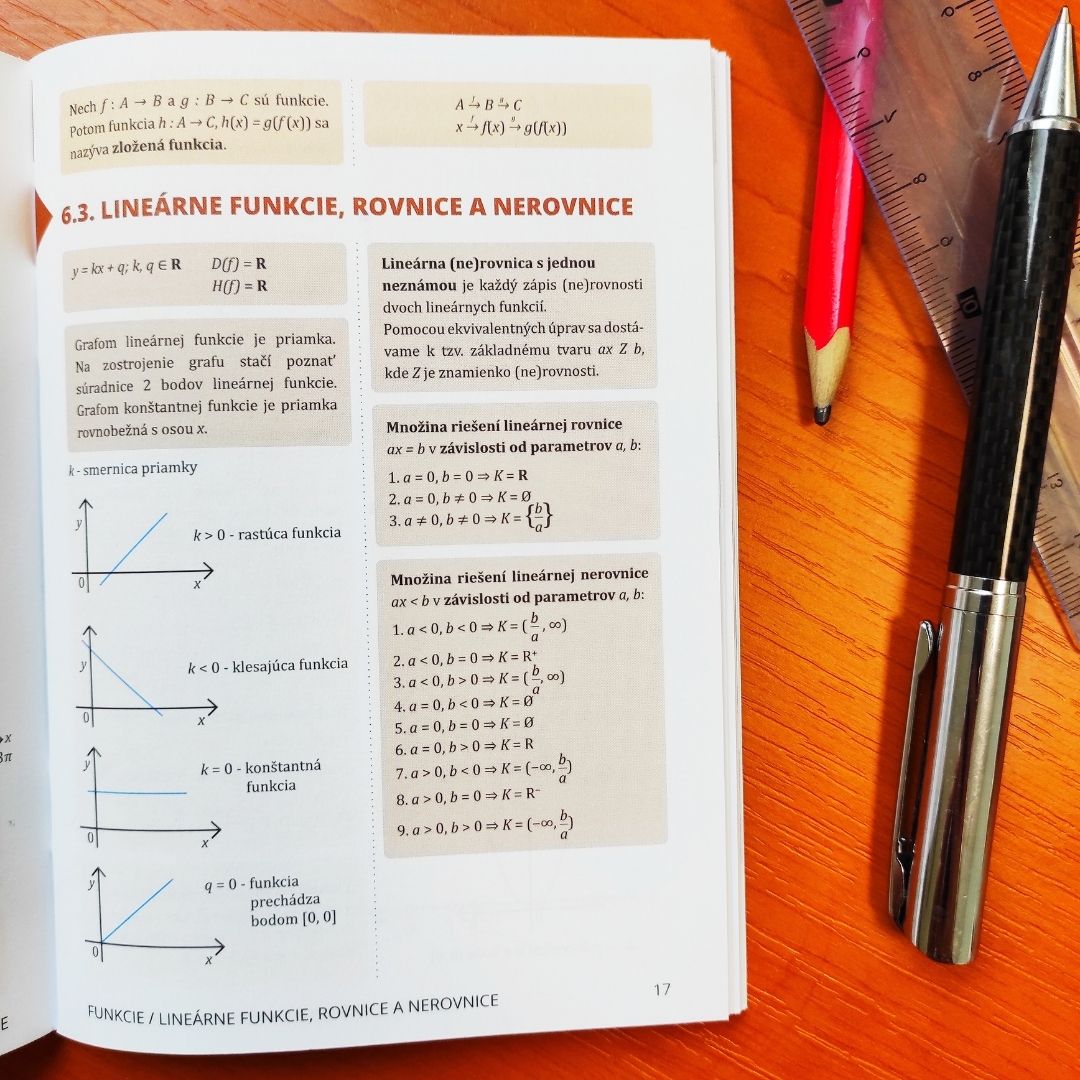 Nech f : A → B a g : B → C sú funkcie.
Potom funkcia h : A → C, h(x) = g(f(x)) sa
nazýva zložená funkcia.
A →f B →g C
x →f f(x) →g g(f(x))
6.3. LINEÁRNE FUNKCIE, ROVNICE A NEROVNICE
y = kx + q; k, q ∈ R D(f) = R
H(f) = R
Grafom lineárnej funkcie je priamka.
Na zostrojenie grafu stačí poznať
súradnice 2 bodov lineárnej funkcie.
Grafom konštantnej funkcie je priamka
rovnobežná s osou x.
k - smernica priamky
y
0
x
k > 0 - rastúca funkcia
y
0
x
k < 0 - klesajúca funkcia
y
0
x
k = 0 - konštantná
funkcia
y
0
x
q = 0 - funkcia
prechádza
bodom [0, 0]
Lineárna (ne)rovnica s jednou
neznámou je každý zápis (ne)rovnosti
dvoch lineárnych funkcií.
Pomocou ekvivalentných úprav sa dostá-
vame k tzv. základnému tvaru ax Z b,
kde Z je znamienko (ne)rovnosti.
Množina riešení lineárnej rovnice
ax = b v závislosti od parametrov a, b:
1. a = 0, b = 0 ⇒ K = R
2. a = 0, b ≠ 0 ⇒ K = Ø
3. a ≠ 0, b ≠ 0 ⇒ K = {b/a}
Množina riešení lineárnej nerovnice
ax < b v závislosti od parametrov a, b:
1. a < 0, b < 0 ⇒ K = (b/a, ∞)
2. a < 0, b = 0 ⇒ K = R⁺
3. a < 0, b > 0 ⇒ K = (b/a, ∞)
4. a = 0, b < 0 ⇒ K = Ø
5. a = 0, b = 0 ⇒ K = Ø
6. a = 0, b > 0 ⇒ K = R
7. a > 0, b < 0 ⇒ K = (−∞, b/a)
8. a > 0, b = 0 ⇒ K = R⁻
9. a > 0, b > 0 ⇒ K = (−∞, b/a)
FUNKCIE / LINEÁRNE FUNKCIE, ROVNICE A NEROVNICE
17